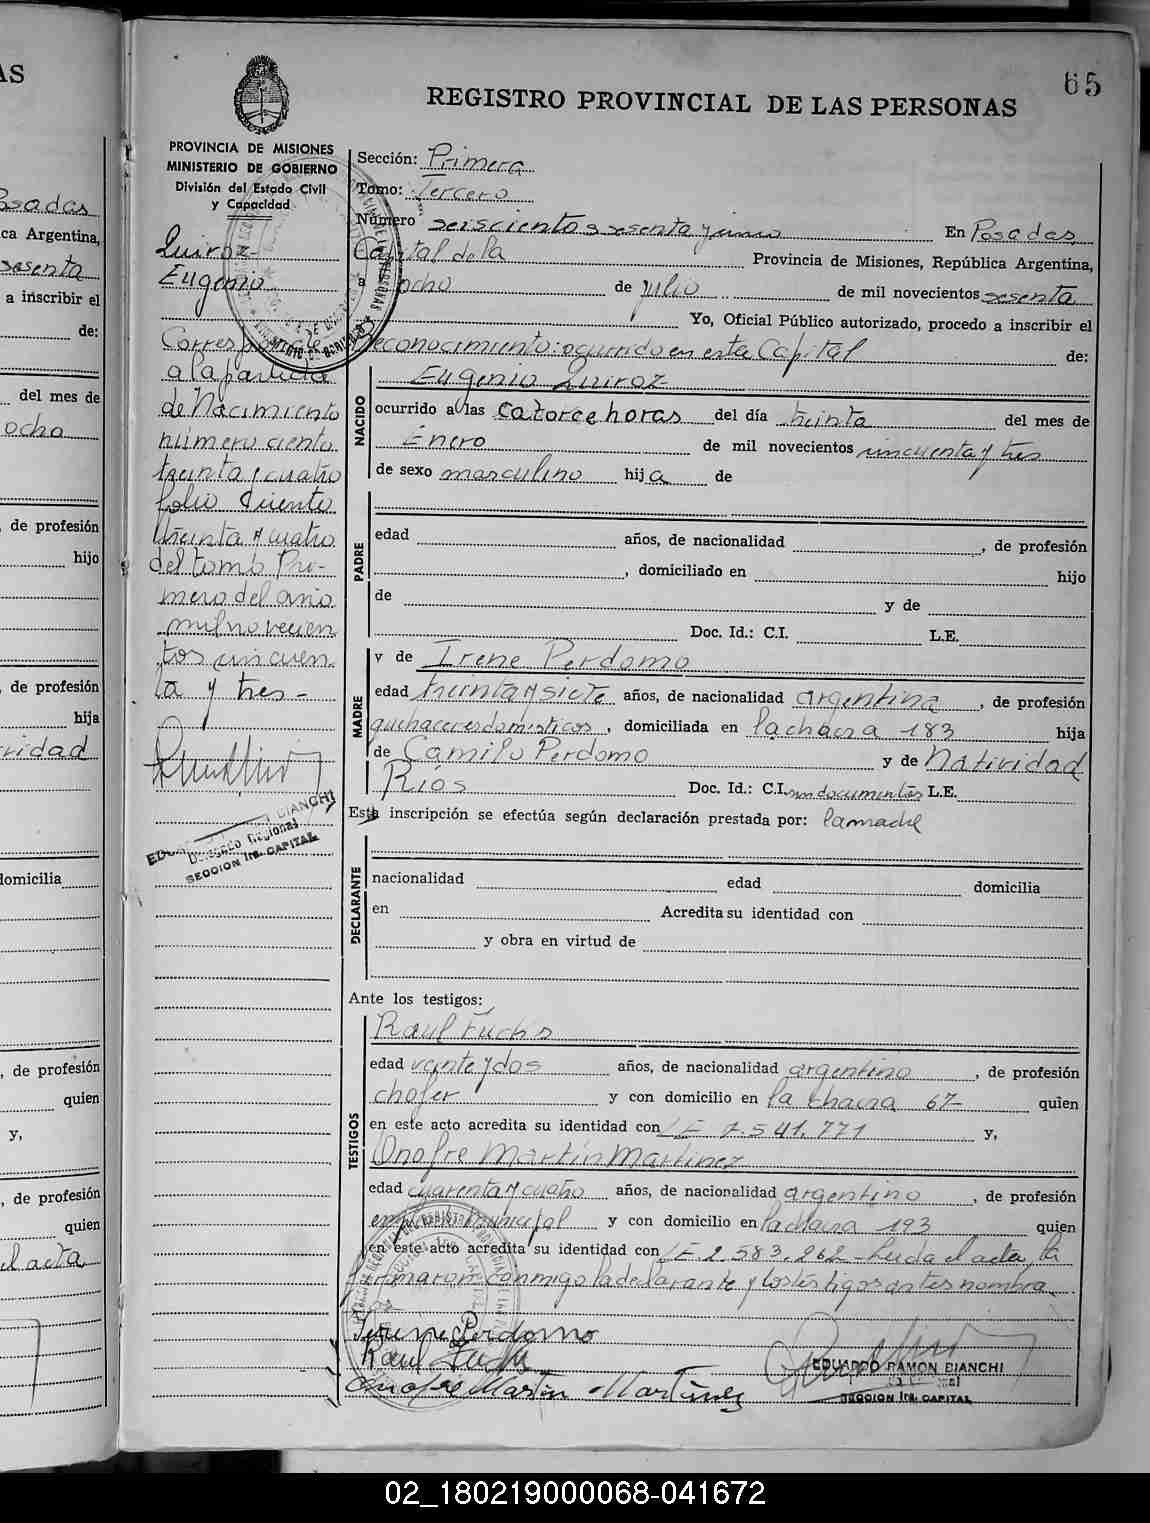 AS
65
REGISTRO PROVINCIAL DE LAS PERSONAS
PROVINCIA DE MISIONES
MINISTERIO DE GOBIERNO
División del Estado Civil
y Capacidad
Quiroz
Eugenio
Corresponde
a la partida
de Nacimiento
número ciento
treinta y cuatro
folio ciento
treinta y cuatro
del tomo Pri-
mero del año
mil novecien
tos cincuen
ta y tres-
BIANCHI
Delegado Regional
SECCION 1ra. CAPITAL
Sección: Primera
Tomo: Tercero
Número seiscientos sesenta y uno En Posadas,
Capital de la Provincia de Misiones, República Argentina,
a ocho de julio de mil novecientos sesenta
Yo, Oficial Público autorizado, procedo a inscribir el
Reconocimiento: ocurrido en esta Capital de:
NACIDO
Eugenio Quiroz
ocurrido a las catorce horas del día treinta del mes de
Enero de mil novecientos cincuenta y tres
de sexo masculino hija de
PADRE
edad años, de nacionalidad , de profesión
, domiciliado en hijo
de y de
Doc. Id.: C.I. L.E.
MADRE
y de Irene Perdomo
edad treinta y siete años, de nacionalidad argentina , de profesión
quehaceres domésticos , domiciliada en la chacra 183 hija
de Camilo Perdomo y de Natividad
Ríos Doc. Id.: C.I. sin documentos L.E.
Esta inscripción se efectúa según declaración prestada por: la madre
DECLARANTE
nacionalidad edad domicilia
en Acredita su identidad con
y obra en virtud de
Ante los testigos:
TESTIGOS
Raul Fuchs
edad veinte y dos años, de nacionalidad argentino , de profesión
chofer y con domicilio en la chacra 67- quien
en este acto acredita su identidad con L.E 7.541.771 y,
Onofre Martin Martinez
edad cuarenta y cuatro años, de nacionalidad argentino , de profesión
empleado municipal y con domicilio en la chacra 193 quien
en este acto acredita su identidad con L.E. 2.583.262-Leida el acta, la
firmaron conmigo la declarante y los testigos antes nombra
dos
Irene Perdomo
Raul Fuchs
Onofre Martin Martinez
EDUARDO RAMON BIANCHI
SECCION 1ra. CAPITAL
Posadas
ca Argentina,
sesenta
a inscribir el
de:
del mes de
ocho
, de profesión
hijo
, de profesión
hija
domicilia
, de profesión
quien
y,
, de profesión
quien
el acta
02_180219000068-041672